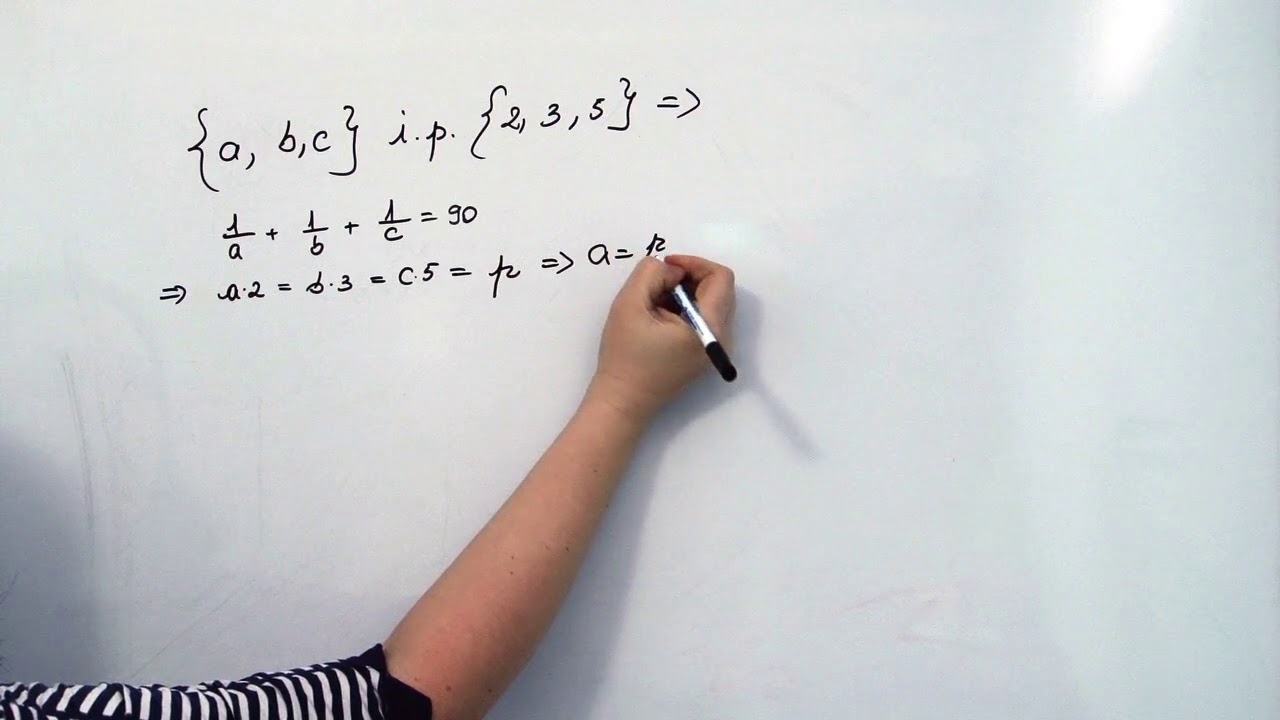 {a, b,c} i.p. {2, 3, 5} =>
1/a + 1/b + 1/c = 90
=> a·2 = b·3 = c·5 = p => a = p